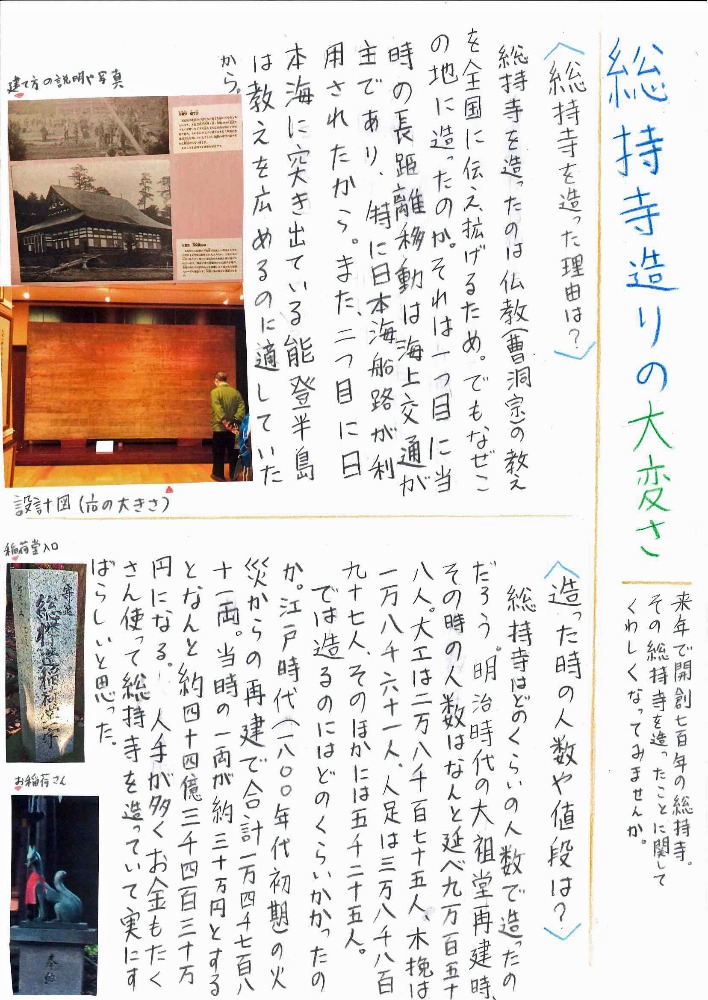 総持寺造りの大変さ
来年で開創七百年の総持寺。
その総持寺を造ったことに関して
くわしくなってみませんか。
〈総持寺を造った理由は?〉
総持寺を造ったのは仏教(曹洞宗)の教え
を全国に伝え、拡げるため。でもなぜこ
の地に造ったのか。それは一つ目に当
時の長距離移動は海上交通が
主であり、特に日本海船路が利
用されたから。また、二つ目に日
本海に突き出ている能登半島
は教えを広めるのに適していた
から。
建て方の説明や写真
設計図(穴の大きさ)
〈造った時の人数や値段は?〉
総持寺はどのくらいの人数で造ったの
だろう。明治時代の大祖堂再建時、
その時の人数はなんと延べ九万百五十
八人。大工は二万八千百七十五人、木挽は
一万八千六十一人、人足は三万八千八百
九十七人、そのほかには五千二十五人。
では造るのにはどのくらいかかったの
か。江戸時代(一八〇〇年代初期)の火
災からの再建で合計一万四千七百八
十一両。当時の一両が約三十万円とする
となんと約四十四億三千四百三十万
円になる。人手が多くお金もたく
さん使って総持寺を造っていて実にす
ばらしいと思った。
稲荷堂入口
お稲荷さん